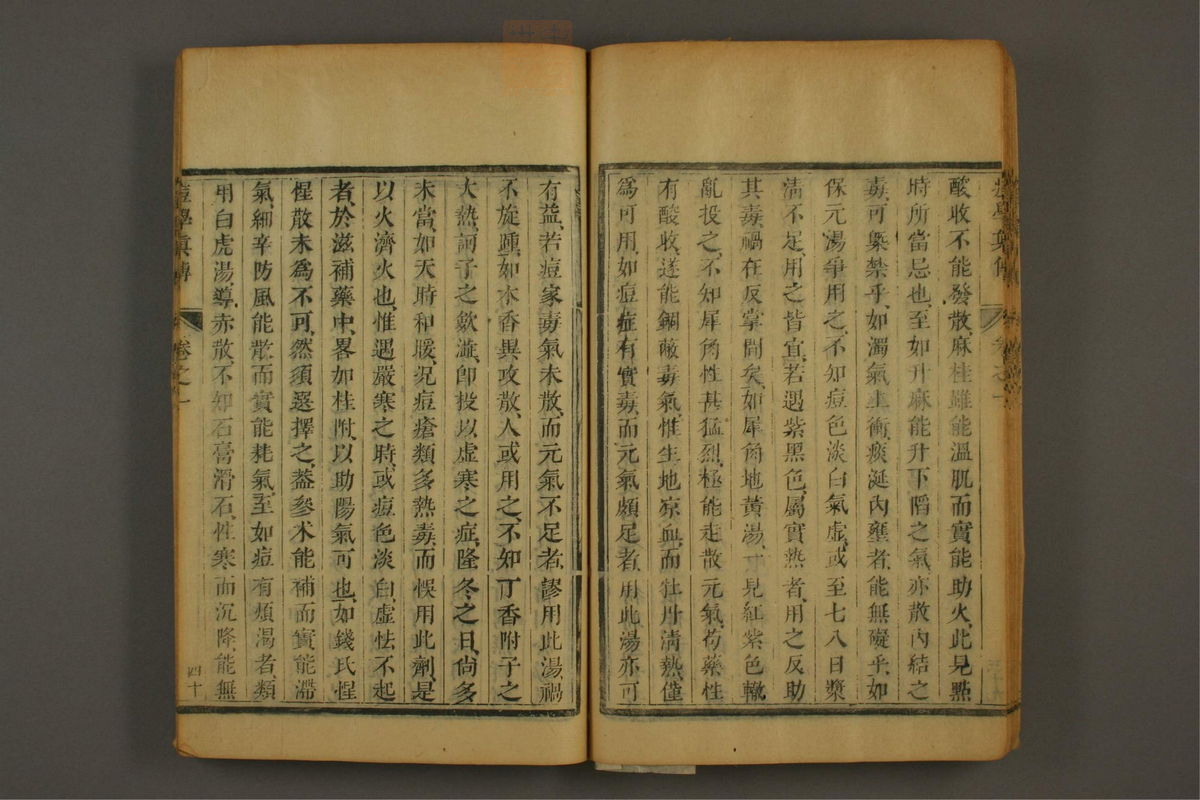 酸收不能發散、麻桂雖能溫肌而實能助火、此見點
時所當忌也、至如升麻能升下陷之氣、亦散內結之
毒、可槩禁乎、如濁氣上衝、痰涎內壅者、能無礙乎、如
保元湯爭用之、不知痘色淡白氣虛、或至七八日漿
淸不足、用之皆宜、若遇紫黑色、屬實熱者、用之反助
其毒、禍在反掌間矣、如犀角地黃湯、一見紅紫色、輙
亂投之、不知犀角性甚猛烈、極能走散元氣、芍藥性
有酸收、遂能錮蔽毒氣、惟生地凉血、而牡丹淸熱、僅
爲可用、如痘症有實毒、而元氣頗足者、用此湯亦可
有益、若痘家毒氣未散、而元氣不足者、謬用此湯、禍
不旋踵、如木香異攻散、人或用之、不知丁香附子之
大熱、訶子之歛澁、卽投以虛寒之症、隆冬之日、尙多
未當、如天時和暖、況痘瘡類多熱毒、而悞用此劑、是
以火濟火也、惟遇嚴寒之時、或痘色淡白、虛怯不起
者、於滋補藥中、畧如桂附、以助陽氣可也、如錢氏惺
惺散未爲不可、然須選擇之、蓋參术能補而實能滯
氣、細辛防風能散、而實能耗氣、至如痘有煩渴者、類
用白虎湯、導赤散、不知石膏滑石、性寒而沉降、能無
痘學真傳
卷之一
四十